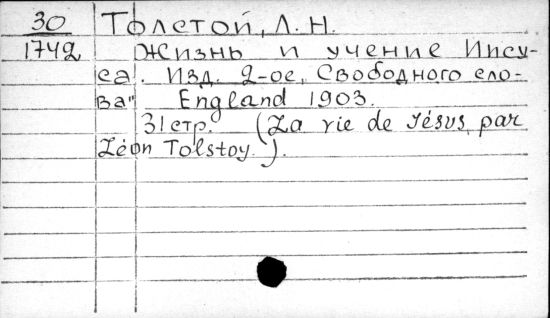 30
1742
Толстой, Л. Н.
Жизнь и учение Иису-
са. Изд. 2-ое, Свободного сло-
ва" England 1903.
31 стр. (La vie de Jésus, par
Léon Tolstoy.).